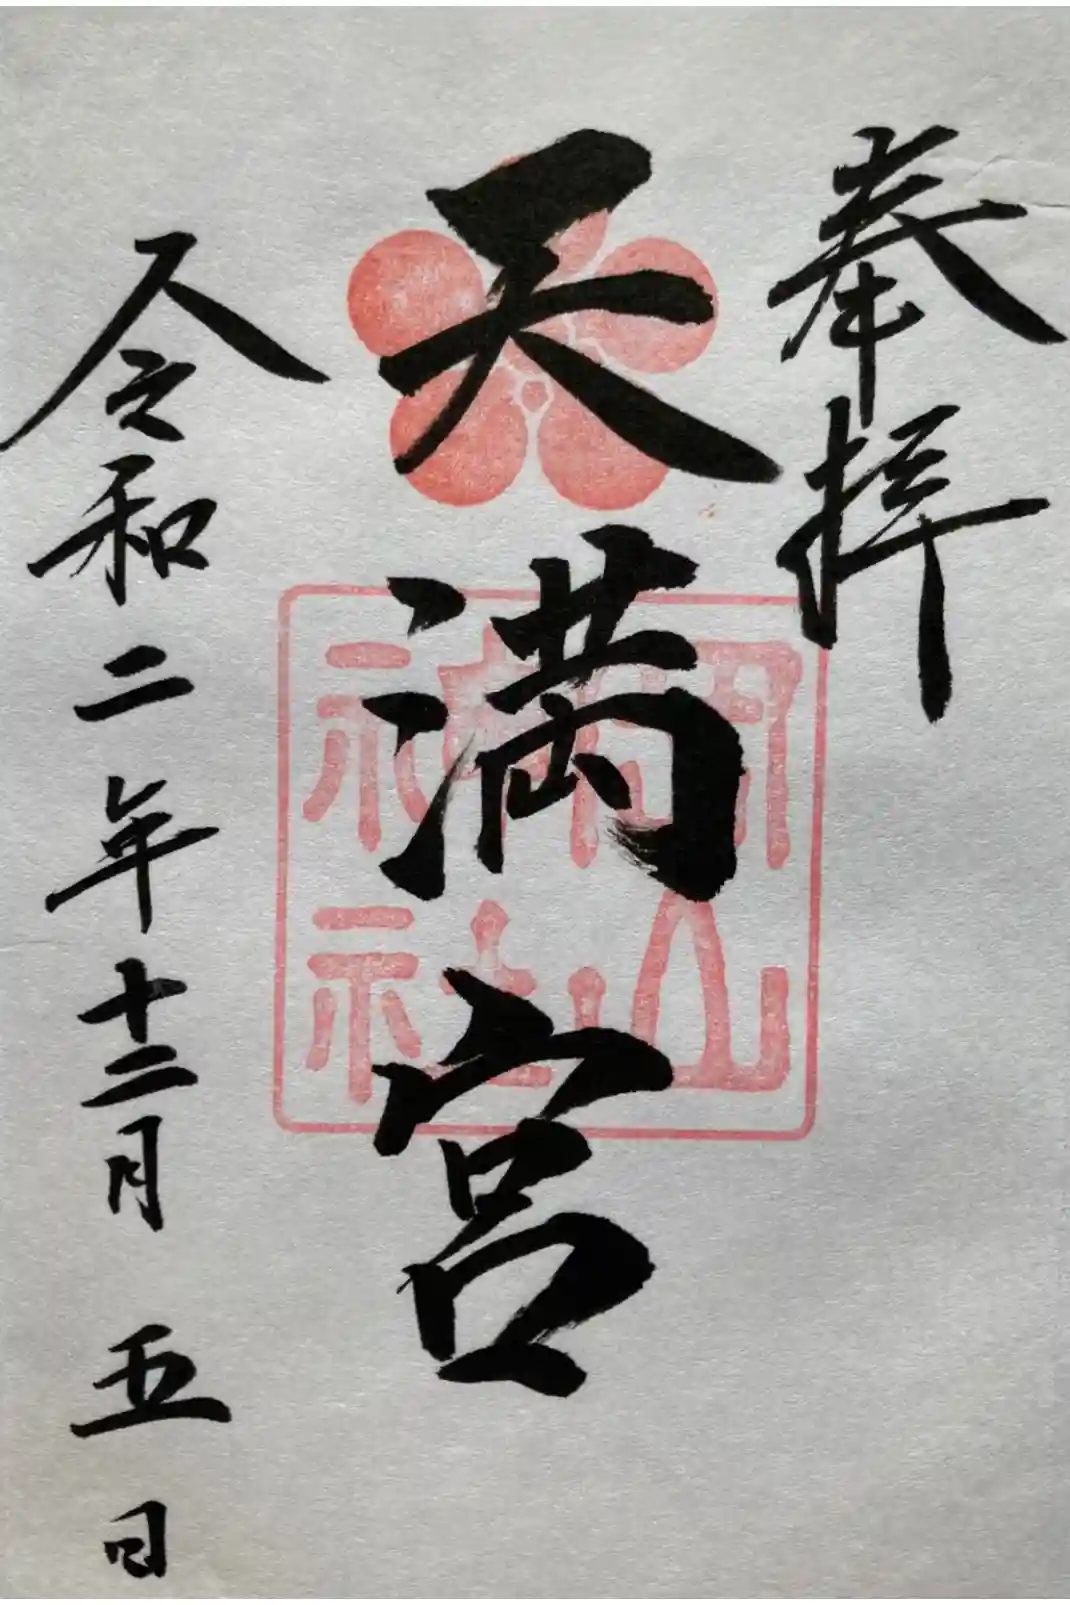 奉拝
天満宮
山
神社
令和二年十二月五日